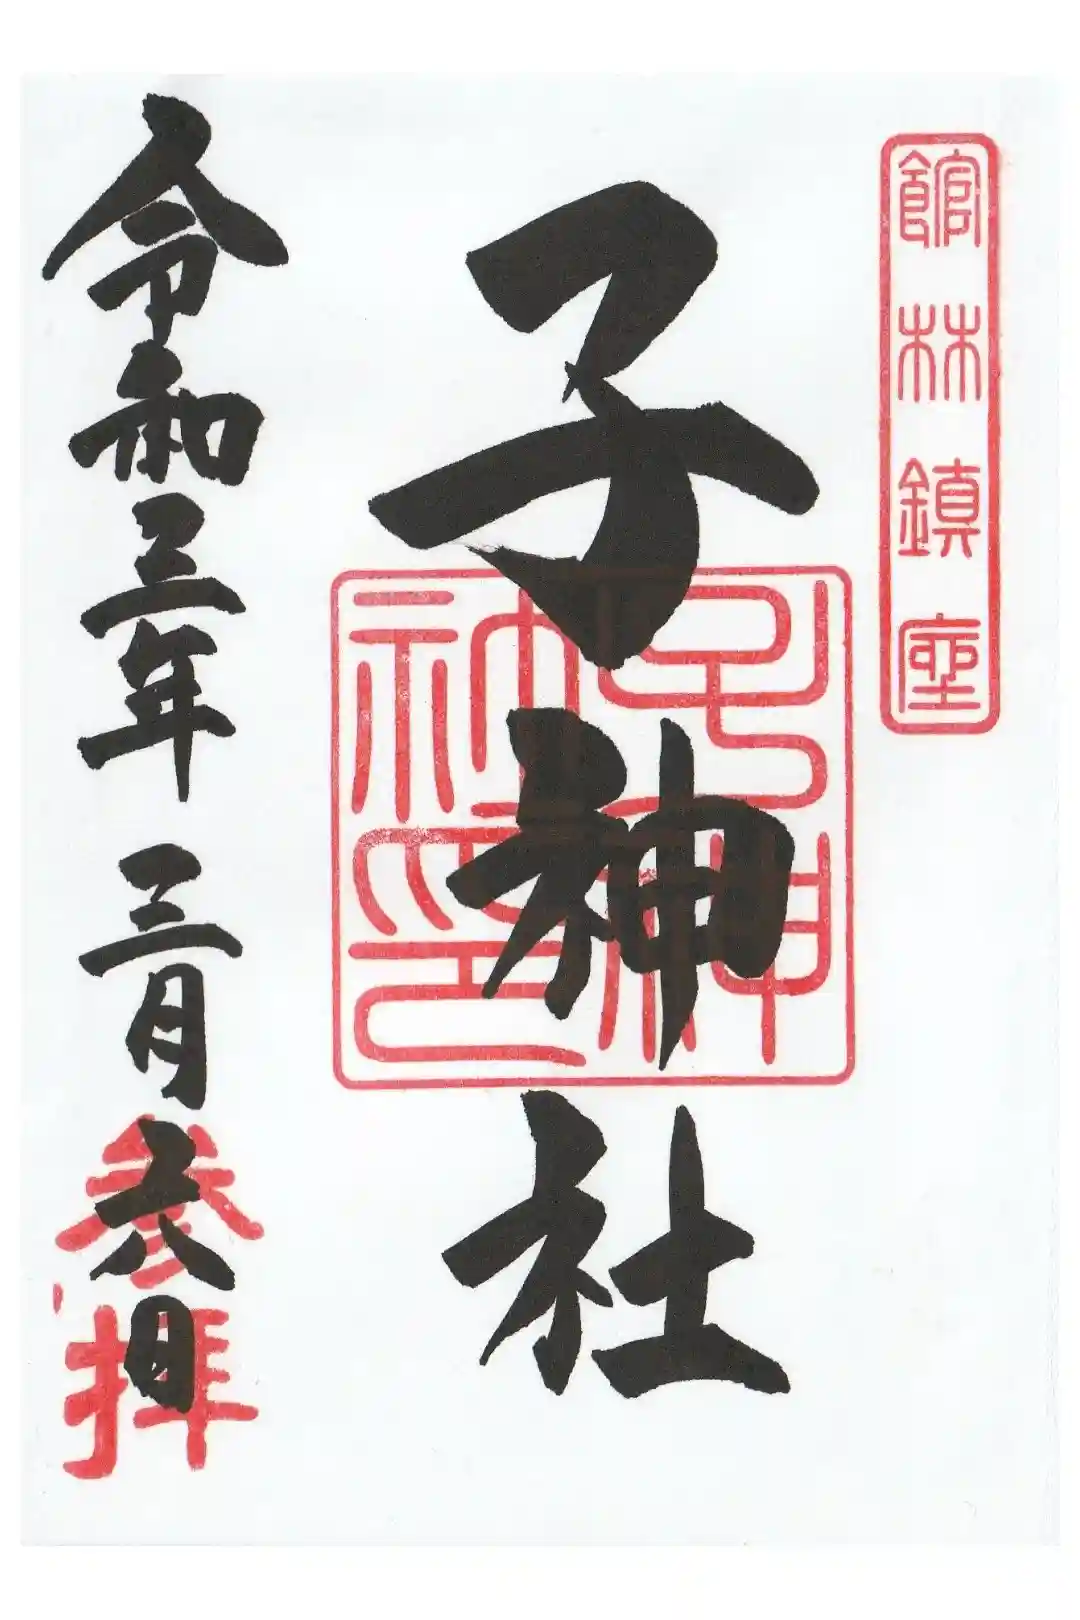 館林鎮座
子神社
子神社印
令和三年三月六日
参拝